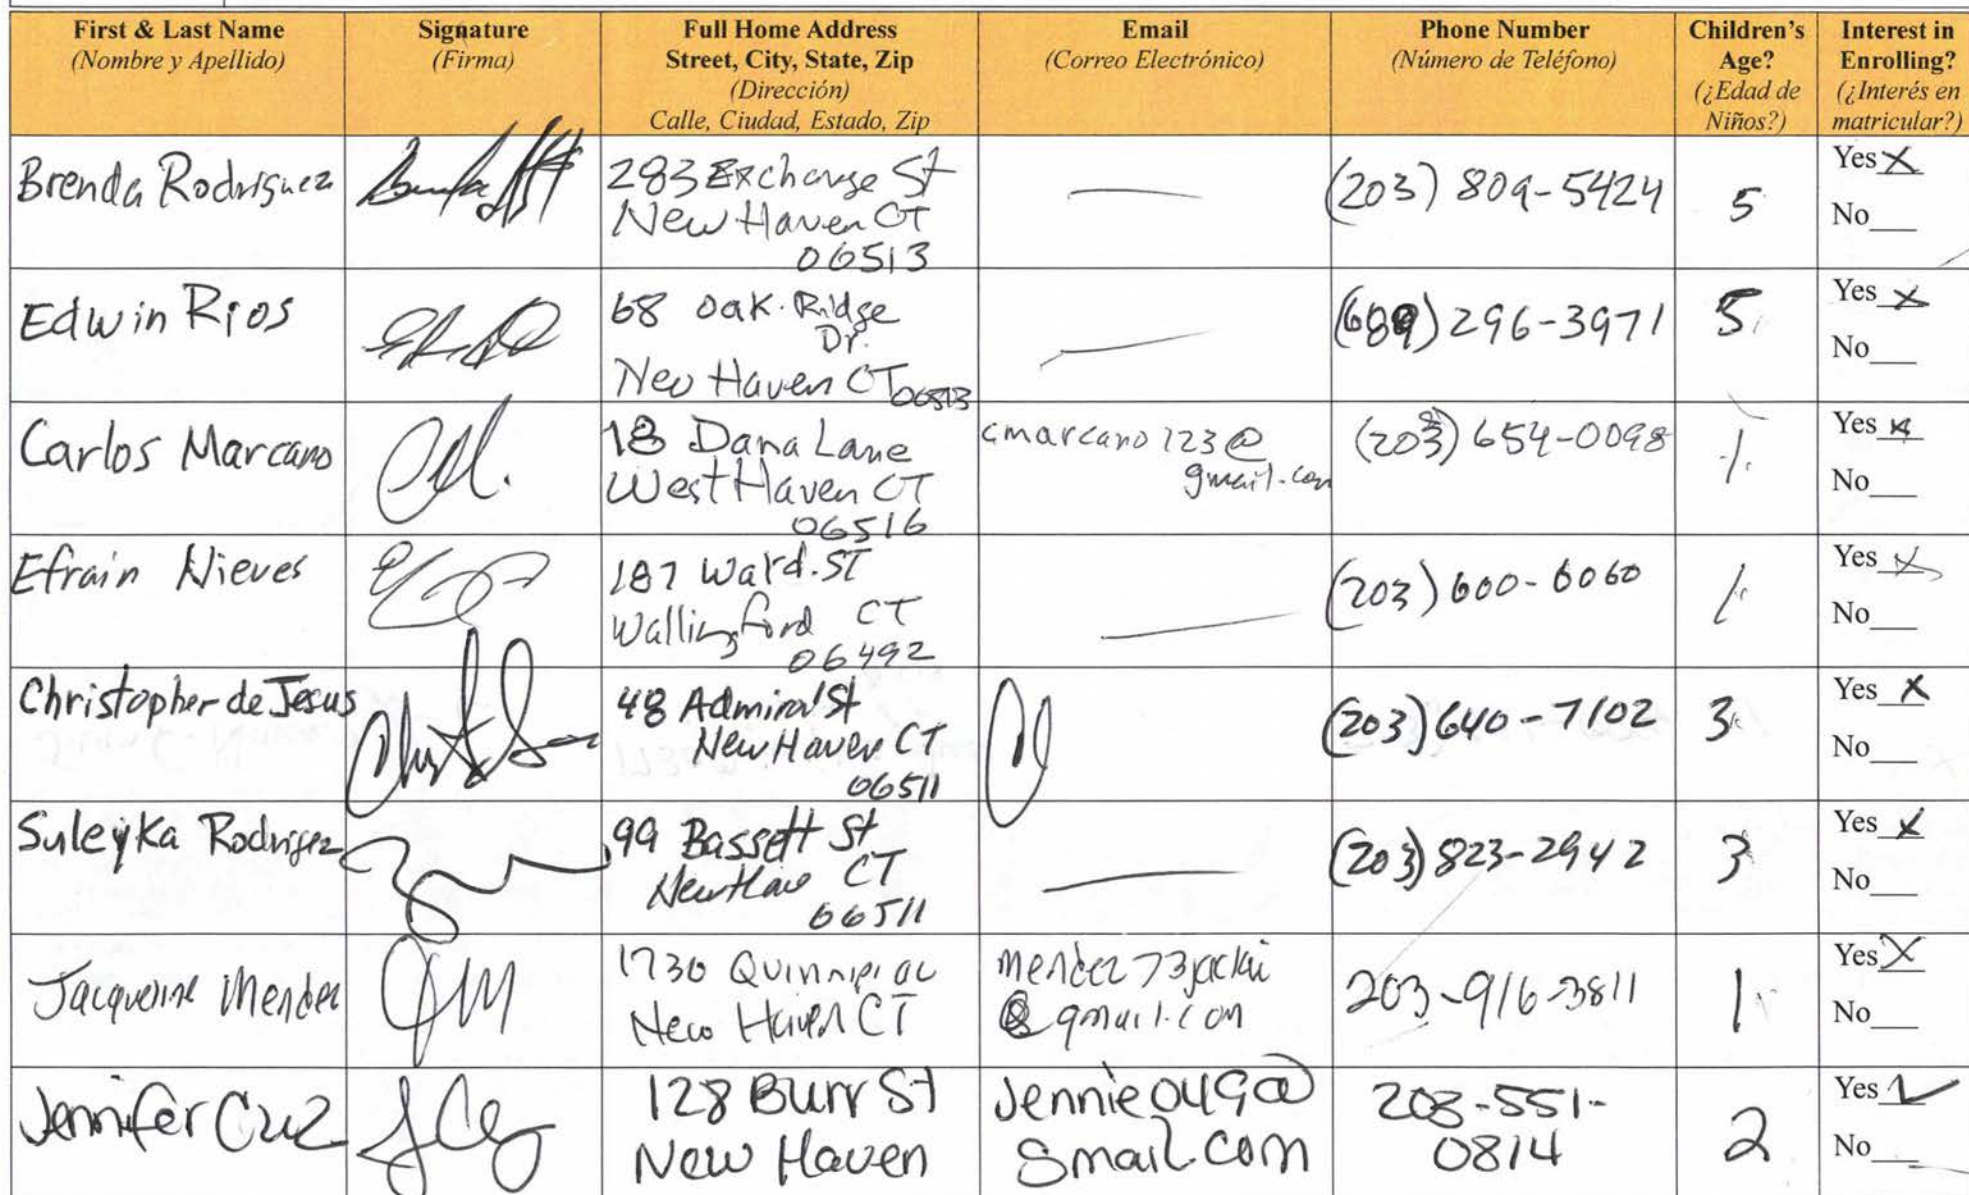 First & Last Name
(Nombre y Apellido)
Signature
(Firma)
Full Home Address
Street, City, State, Zip
(Dirección)
Calle, Ciudad, Estado, Zip
Email
(Correo Electrónico)
Phone Number
(Número de Teléfono)
Children's
Age?
(¿Edad de
Niños?)
Interest in
Enrolling?
(¿Interés en
matricular?)
Brenda Rodriguez
283 Exchange St
New Haven CT
06513
(203) 809-5424
5
Yes X
No
Edwin Rios
68 Oak Ridge
Dr.
New Haven CT 06513
296-3971
5
Yes X
No
Carlos Marcano
18 Dana Lane
West Haven CT
06516
cmarcano123@
gmail.com
(203) 654-0098
1
Yes X
No
Efrain Nieves
187 Ward. ST
Wallingford CT
06492
(203) 600-6060
1
Yes X
No
Christopher de Jesus
48 Admiral St
New Haven CT
06511
(203) 640-7102
3
Yes X
No
Suleyka Rodrigez
99 Bassett St
CT
06511
(203) 823-2942
3
Yes X
No
Jacqueline Mendez
1730 Quinnipiac
New Haven CT
mendez73jackie
@gmail.com
203-916-3811
1
Yes X
No
Jennifer Cruz
128 Burr St
New Haven
Jennie049@
gmail.com
203-551-
0814
2
Yes ✓
No